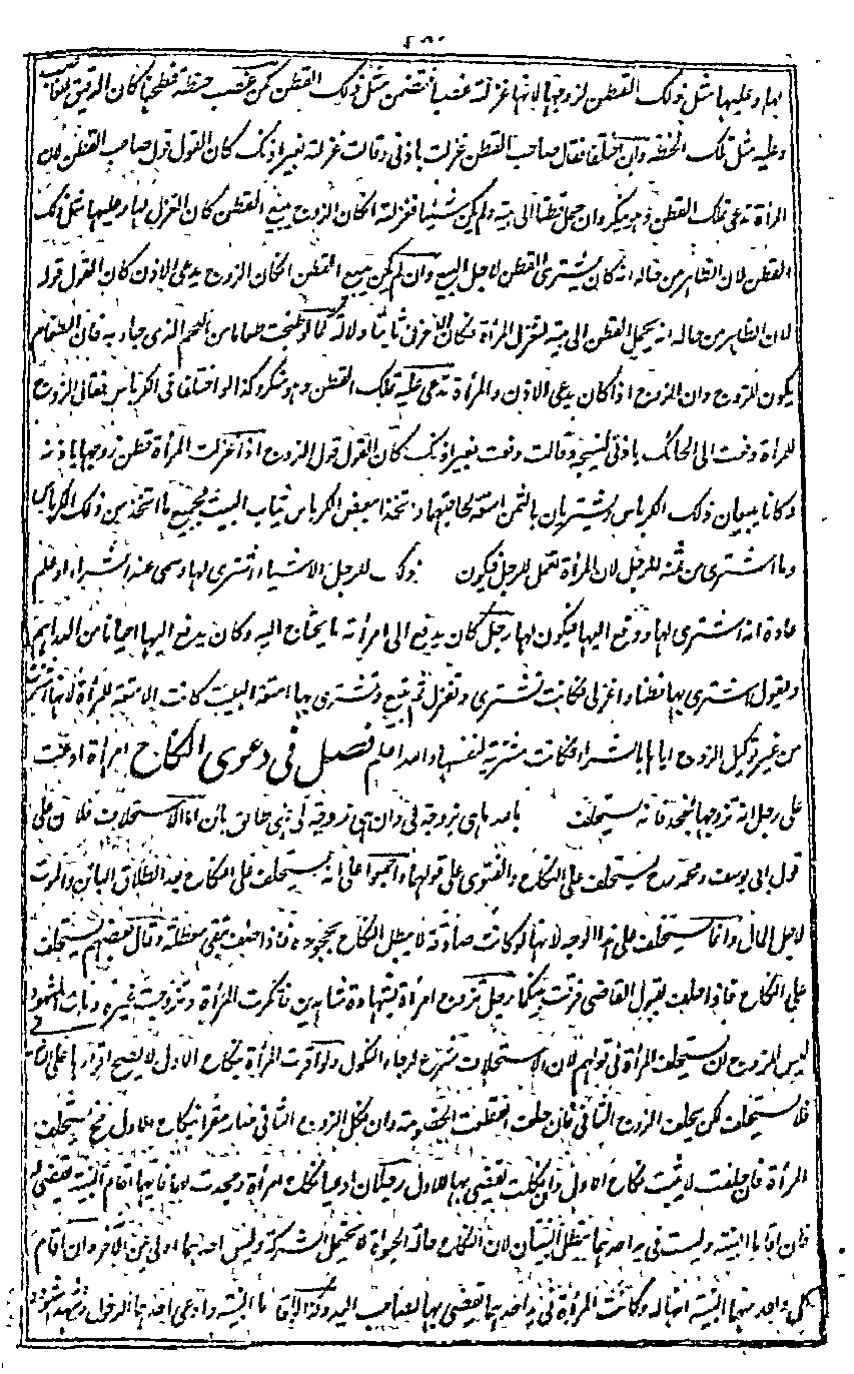 لها وعليها مثل ذلك القطن لزوجها لانها غزلته غصبا فتضمن مثل ذلك القطن كمن غصب حنطة فطحنها كان الدقيق للغاصب
وعليه مثل تلك الحنطة وان اختلفا فقال صاحب القطن غزلت باذنى وقالت غزلته بغير اذنك كان القول قول صاحب القطن لان
المرأة تدعى تملك القطن وهو ينكر وان حمل قطنا الى بيته ولم يكن شيئا فغزلته ان كان الزوج يبيع القطن كان الغزل لها وعليها مثل ذلك
القطن لان الظاهر من حاله انه كان يشترى القطن لاجل البيع وان لم يكن يبيع القطن ان كان الزوج يدعى الاذن كان القول قوله
لان الظاهر من حاله انه يحمل القطن الى بيته لتغزل المرأة فكان الاذن ثابتا دلالة كما لو طبخت طعاما من اللحم الذى جاء به فان الطعام
يكون للزوج وان الزوج اذا كان يدعى الاذن والمرأة تدعى عليه تملك القطن وهو منكر وكذا لو اختلفا فى الكرباس فقال الزوج
للمرأة دفعت الى الحائك باذنى لينسجه وقالت دفعت بغير اذنك كان القول قول الزوج اذا غزلت المرأة قطن زوجها باذنه
وكانا يبيعان ذلك الكرباس ويشتريان بالثمن امتعة لحاجتهما وتتخذ ببعض الكرباس ثياب البيت فجميع ما اتخذ من ذلك الكرباس
وما اشترى من ثمنه للرجل لان المرأة تعمل للرجل فيكون ذلك للرجل الا شيئا اشترى لها وسمى عند الشراء او علم
عادة انه اشترى لها ودفع اليها فيكون لها رجل كان يدفع الى امرأته ما يحتاج اليه وكان يدفع اليها احيانا من الدراهم
ويقول اشترى بها قطنا واغزلى فكانت تشترى وتغزل ثم تبيع وتشترى بها امتعة البيت كانت الامتعة للمرأة لانها اشترت
من غير توكيل الزوج اياها بالشراء فكانت مشترية لنفسها والله اعلم فصل فى دعوى النكاح امرأة ادعت
على رجل انه تزوجها فجحد فانه يستحلف بالله ما هى بزوجة لى وان هى زوجة لى فهى طالق بائن اما الاستحلاف فلان على
قول ابى يوسف ومحمد رح يستحلف على النكاح والفتوى على قولهما واجمعوا على انه يستحلف على النكاح بعد الطلاق البائن والموت
لاجل المال وانما يستحلف على هذا الوجه لانها لو كانت صادقة لا يبطل النكاح بجحوده فاذا حلف تبقى معطلة وقال بعضهم يستحلف
على النكاح فاذا حلف يقول القاضى فرقت بينكما رجل تزوج امرأة بشهادة شاهدين فانكرت المرأة وتزوجت بغيره ومات الشهود
ليس للزوج ان يستحلف المرأة فى قولهم لان الاستحلاف شرع لرجاء النكول ولو اقرت المرأة بنكاح الاول لا يصح اقرارها على الثانى
فلا يستحلف لكن يحلف الزوج الثانى فان حلف انقطعت الخصومة وان نكل الزوج الثانى فصار مقرا بنكاح الاول فح يستحلف
المرأة فان حلفت لا يثبت نكاح الاول وان نكلت يقضى بها للاول رجلان ادعيا نكاح امرأة وجحدت فايهما اقام البينة يقضى له
فان اقاما البينة وليست فى يد احدهما يبطل البينتان لان النكاح حالة الحيوة لا يحتمل الشركة وليس احدهما اولى من الآخر وان اقام
كل واحد منهما البينة انها له وكانت المرأة فى يد احدهما يقضى بها لصاحب اليد وكذا لو اقاما البينة وادعى احدهما الدخول وشهد الشهود